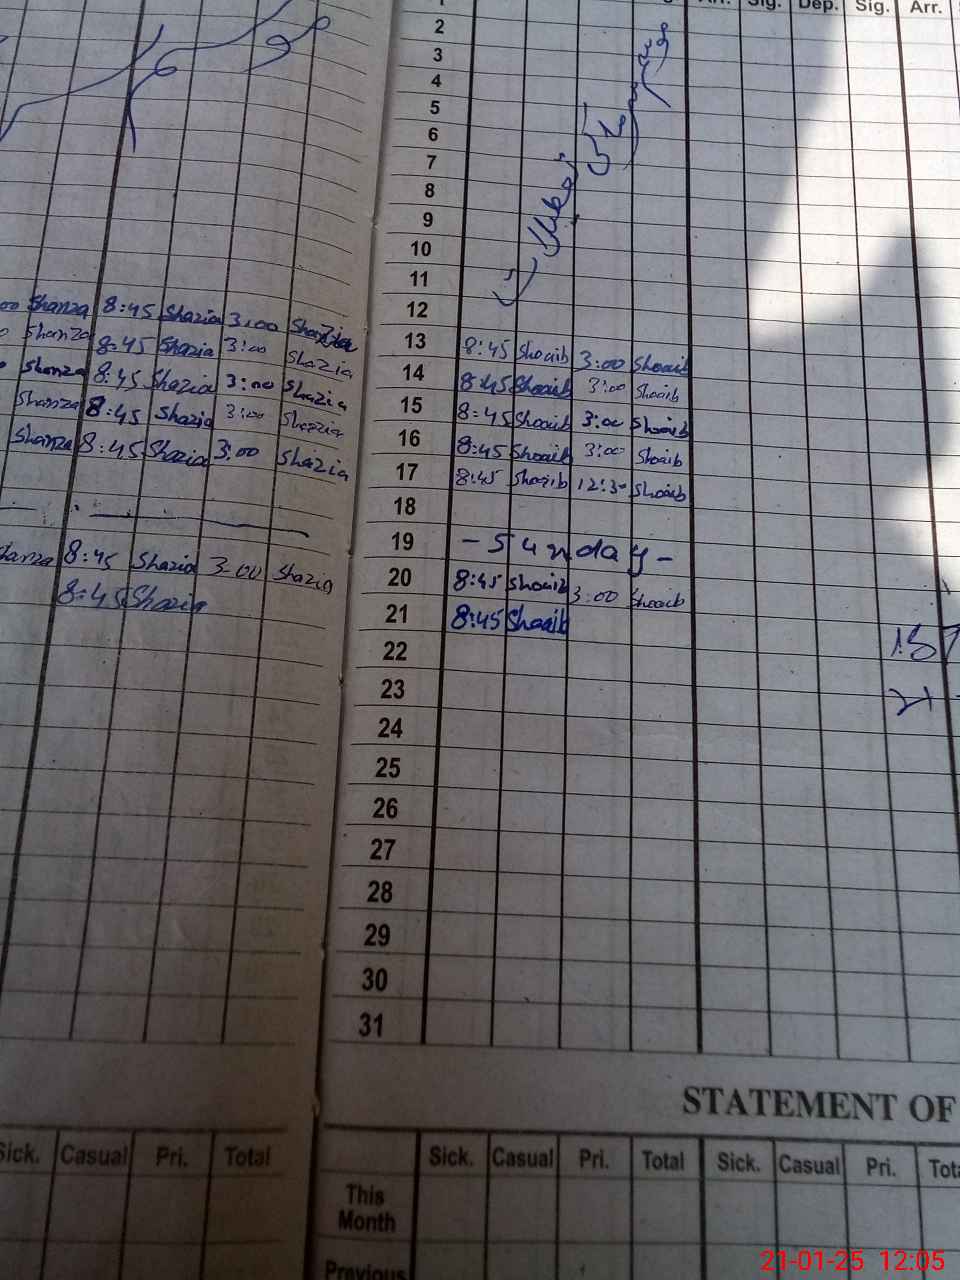 Sig. Dep. Sig. Arr.
1
2
3
4
5
6
7
8
9
10
11
12
13 8:45 Shoaib 3:00 Shoaib
14 8:45 Shoaib 3:00 Shoaib
15 8:45 Shoaib 3:00 Shoaib
16 8:45 Shoaib 3:00 Shoaib
17 8:45 Shoaib 12:3- Shoaib
18
19 - Sunday -
20 8:45 Shoaib 3:00 Shoaib
21 8:45 Shoaib
22
23
24
25
26
27
28
29
30
31
00 Shanza 8:45 Shazia 3:00 Shazia
Shanza 8:45 Shazia 3:00 Shazia
Shanza 8:45 Shazia 3:00 Shazia
Shanza 8:45 Shazia 3:00 Shazia
Shanza 8:45 Shazia 3:00 Shazia
Shanza 8:45 Shazia 3:00 Shazia
8:45 Shazia
STATEMENT OF
Sick. Casual Pri. Total
Sick. Casual Pri. Total Sick. Casual Pri.
This
Month
Previous
21-01-25 12:05